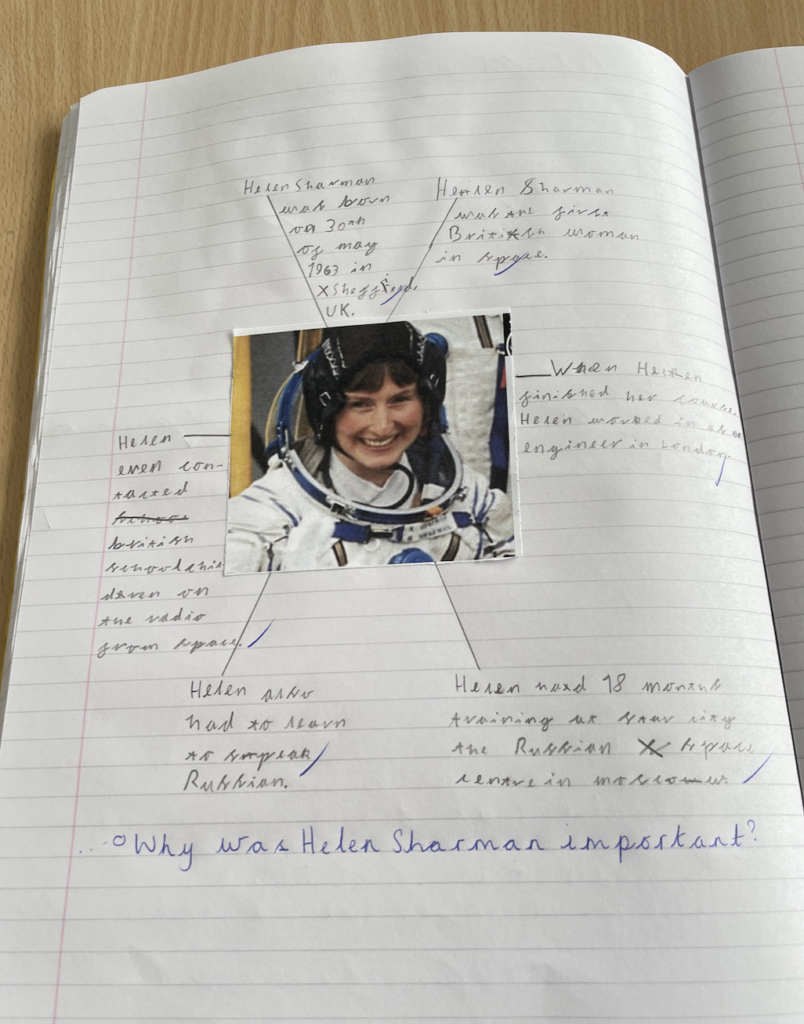 Helen Sharman
was born
on 30th
of may
1963 in
Sheffield,
UK.
Helen Sharman
was the first
British woman
in space.
When Helen
finished her course,
Helen worked in as an
engineer in London.
Helen
even con-
tacted
british
schoolchil
dren on
the radio
from space.
Helen also
had to learn
to speak
Russian.
Helen had 18 months
training at star city
the Russian space
centre in moscow
Why was Helen Sharman important?